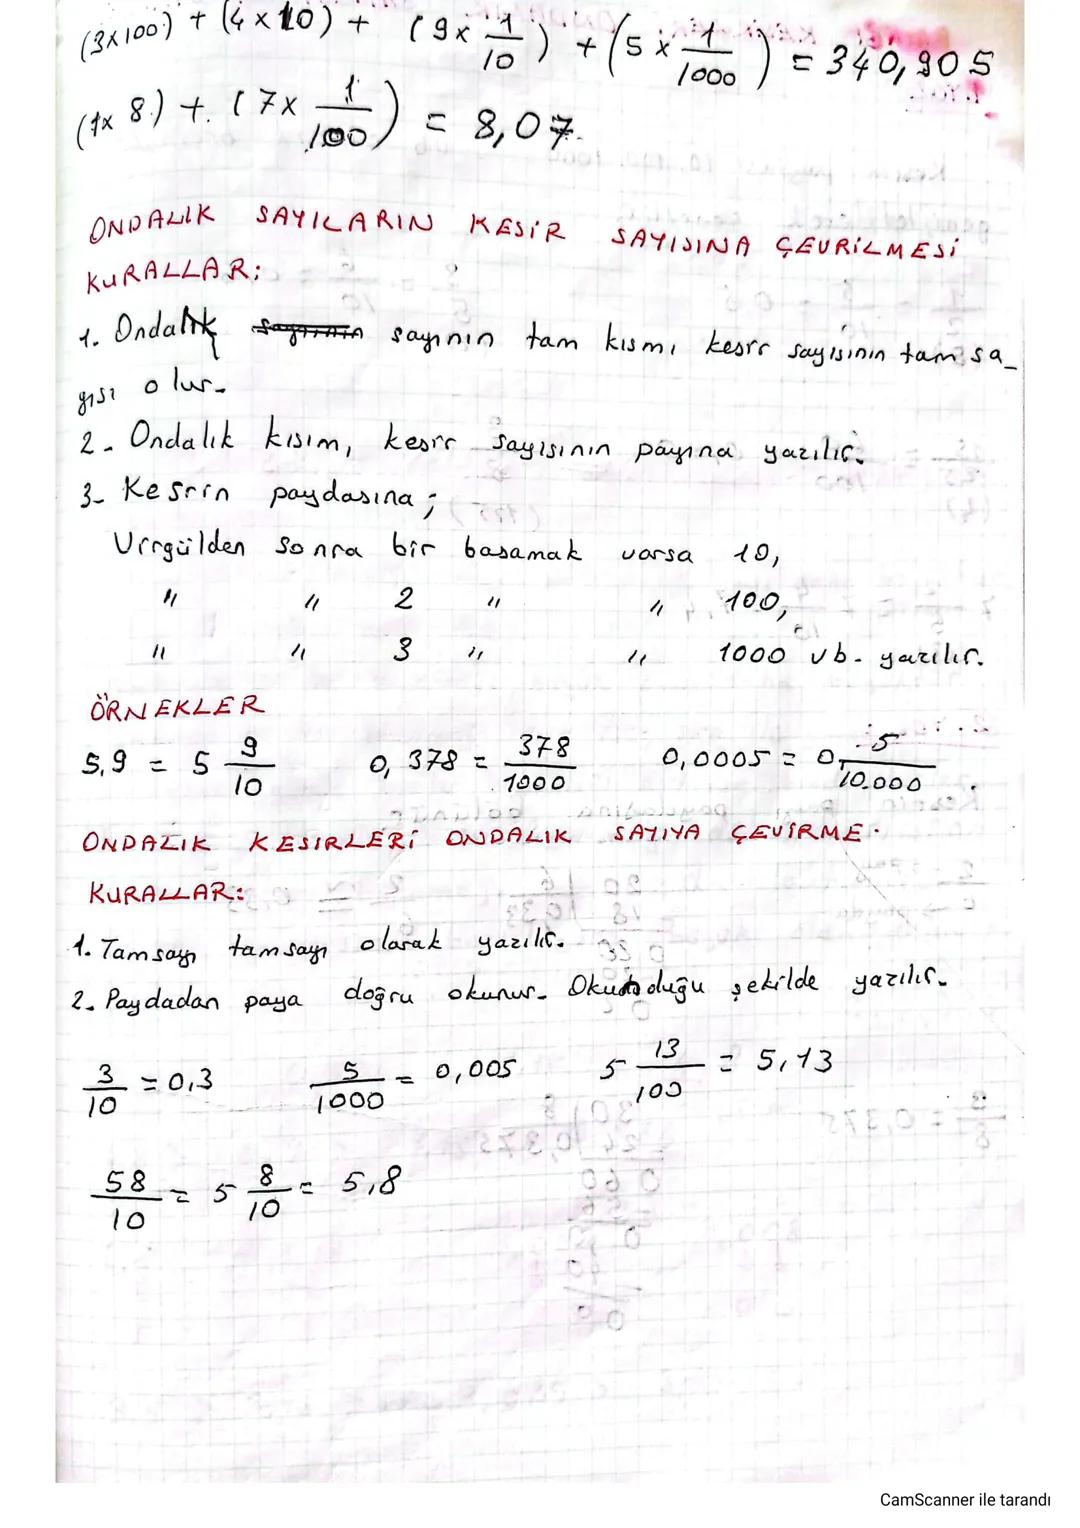 (3x100) + (4x10) + (9x 1/10) + (5x 1/1000) = 340,905
(1x 8) + (7x 1/100) = 8,07
ONDALIK SAYILARIN KESİR SAYISINA ÇEVRİLMESİ
KURALLAR:
1. Ondalık sayının tam kısmı kesir sayısının tam sa_
yısı olur.
2. Ondalık kısım, kesir sayısının payına yazılır.
3- Kesrin paydasına ;
Virgülden sonra bir basamak varsa 10,
" " 2 " " 100,
" " 3 " " 1000 vb. yazılır.
ÖRNEKLER
5,9 = 5 9/10 0,378 = 378/1000 0,0005 = 0, 5/10.000
ONDALIK KESIRLERİ ONDALIK SAYIYA ÇEVİRME.
KURALLAR:
1. Tamsayı tamsayı olarak yazılır.
2. Paydadan paya doğru okunur. Okunduğu şekilde yazılır.
3/10 = 0,3 5/1000 = 0,005 5 13/100 = 5,13
58/10 = 5 8/10 = 5,8
CamScanner ile tarandı